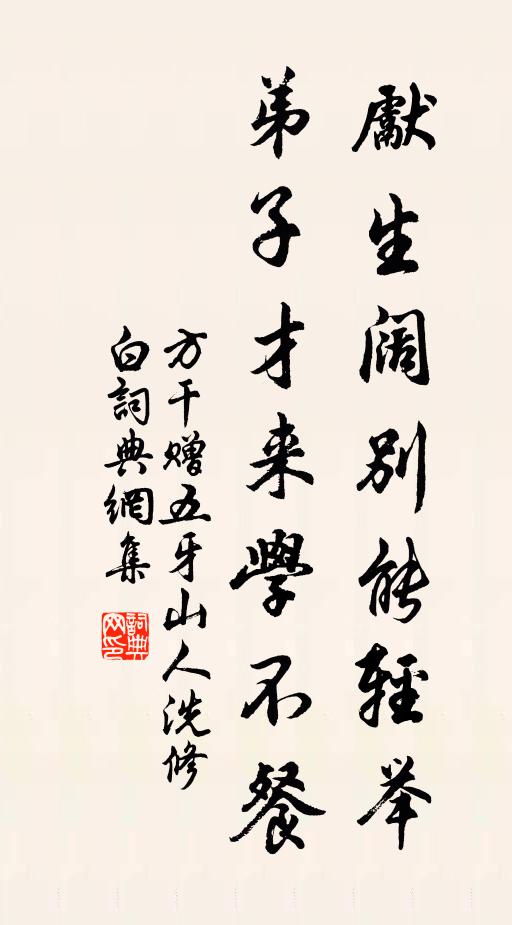 獻生闊別能輕举
弟子才来學不餐
方干贈五牙山人洗修
白詞典網集
詞典网印